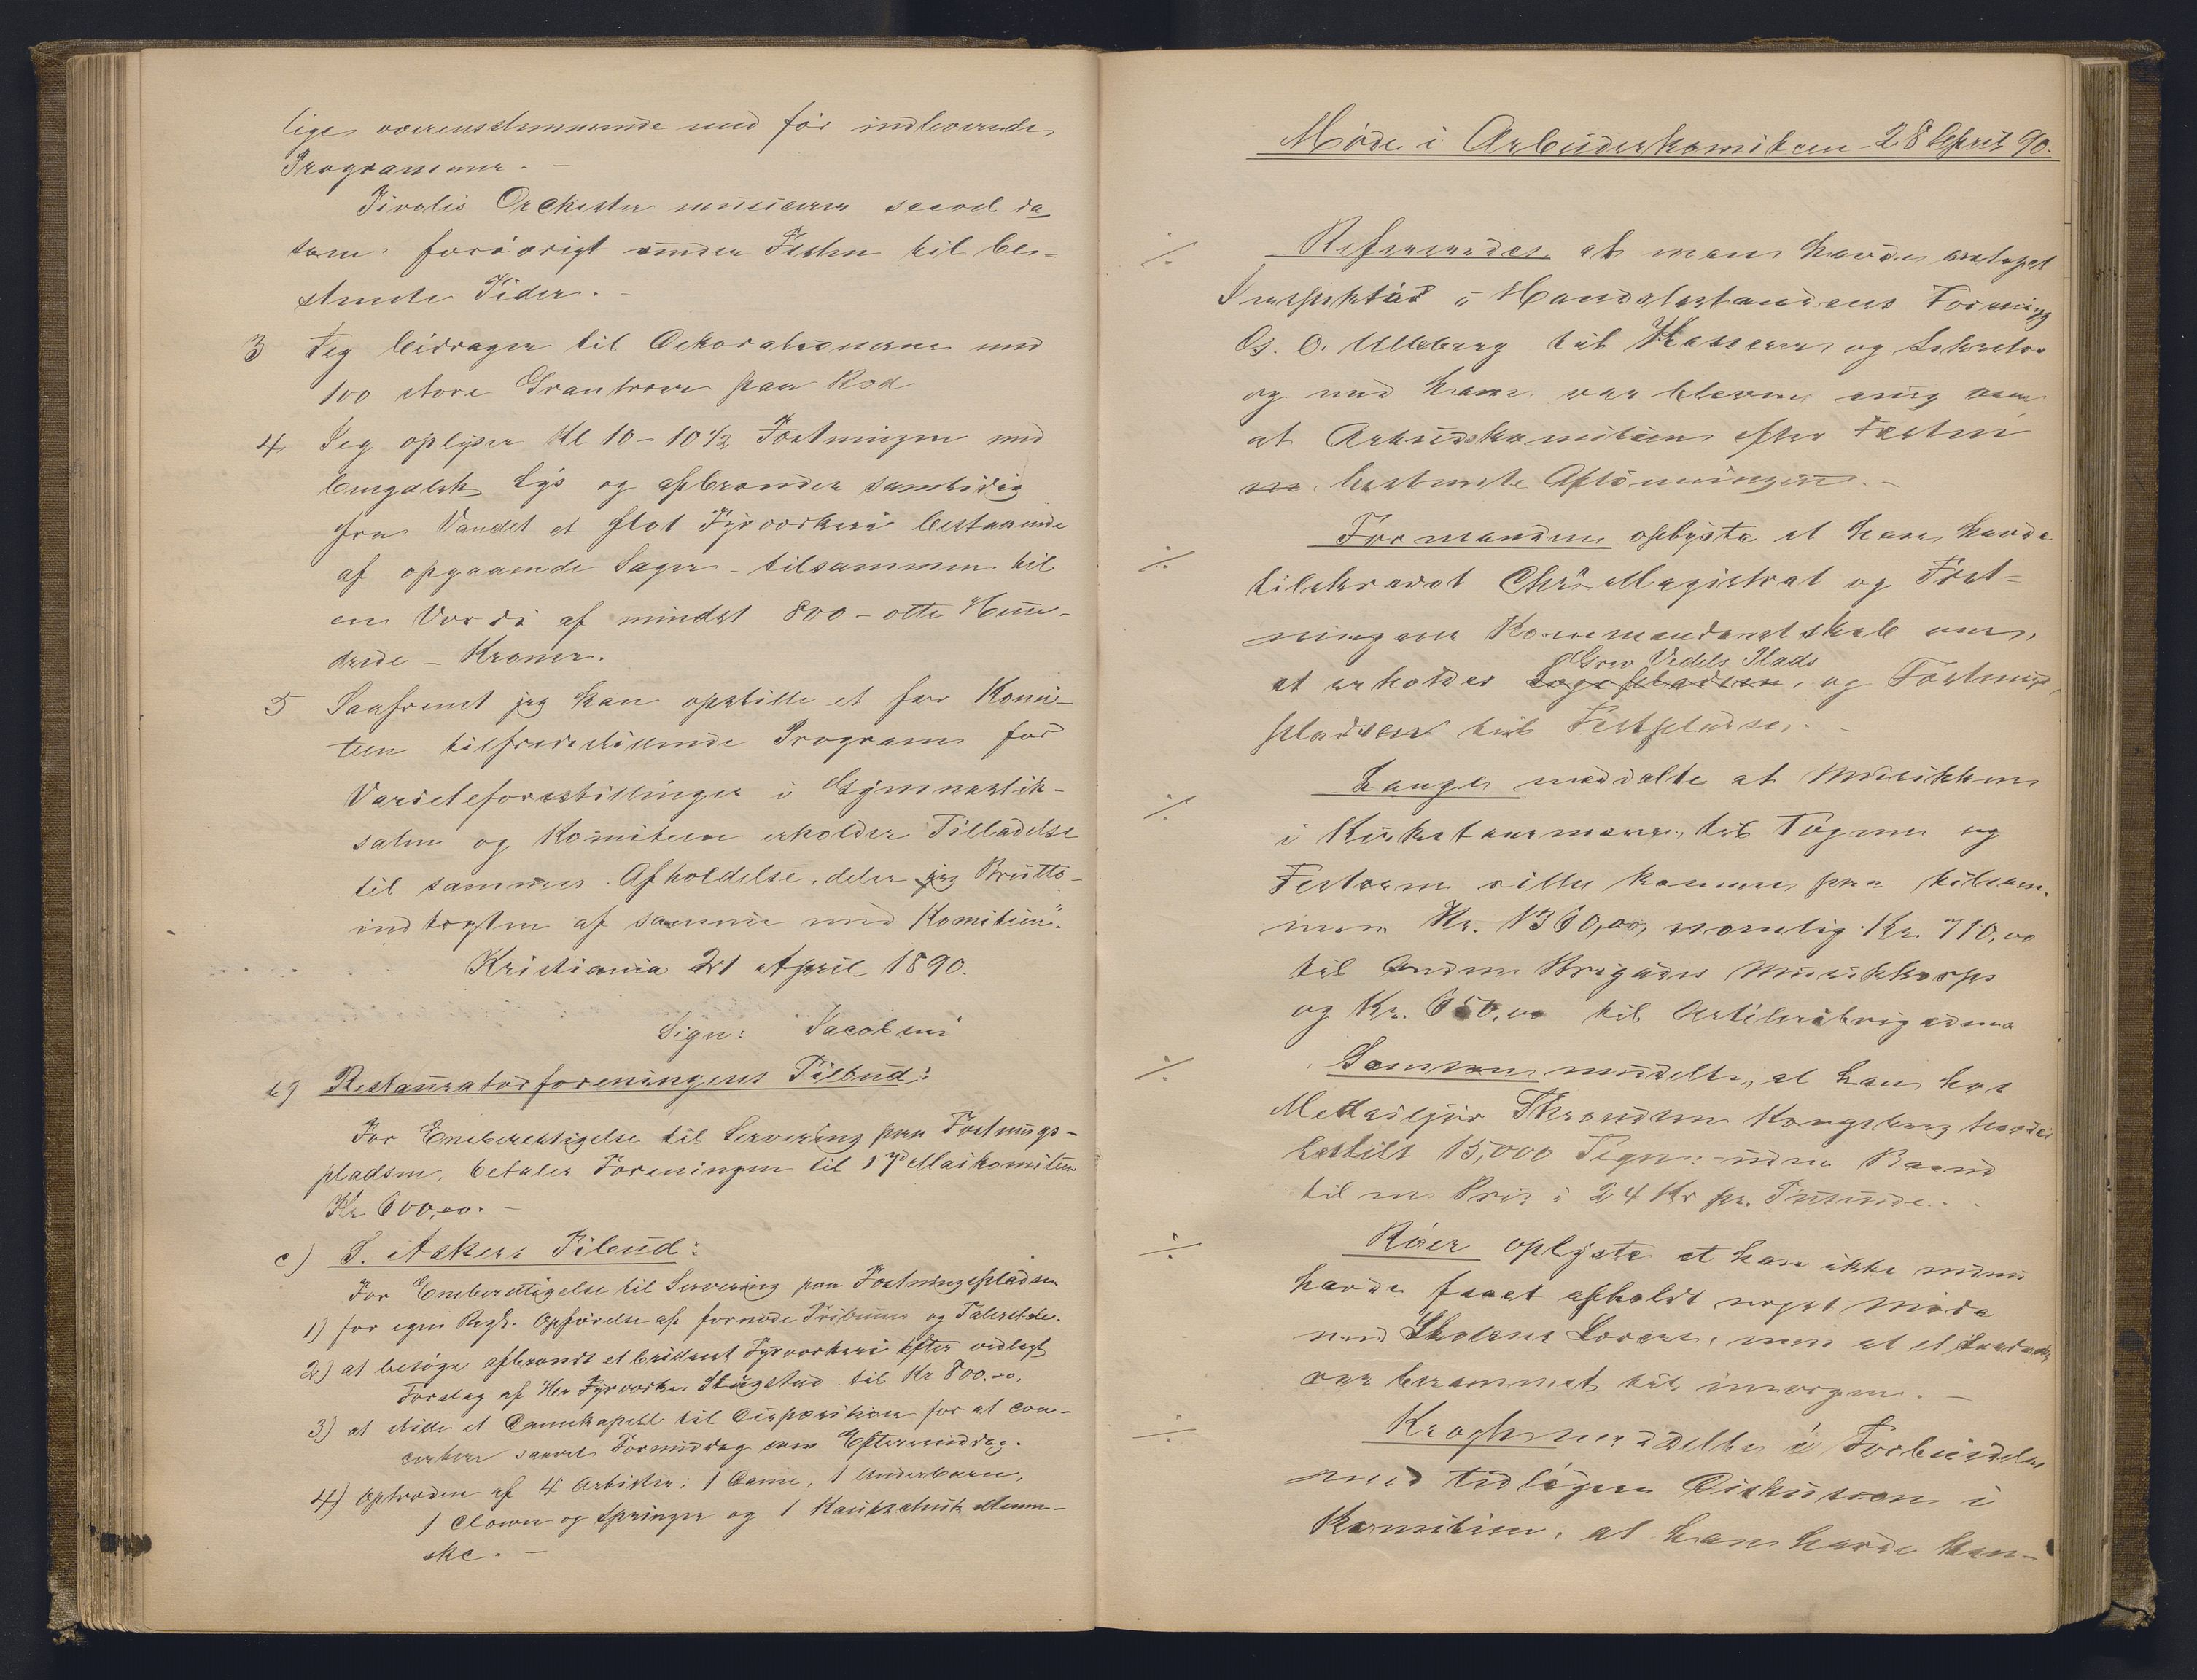 lige overensstemmende med før indleverede
Programmer. —
Tivolis Orchester musicerer saavel da
som forøvrigt under Festen til be-
stemte Tider. —
3 Jeg bidrager til Dekorationerne med
100 store Grantrær paa Rod
4 Jeg oplyser Kl 10 - 10½ Fæstningen med
bengalsk Lys og afbrænder samtidig
fra Vandet et flot Fyrværkeri bestaaende
af opgaaende Sager - tilsammen til
en Værdi af mindst 800 - otte Hun-
drede - Kroner.
5 Saafremt jeg kan opstille et for Komi-
teen tilfredsstillende Program for
Varieteforestillinger i Gymnastik-
salen og Komiteen erholder Tilladelse
til sammes Afholdelse, deler jeg Brutto-
indtægten af samme med Komiteen".
Kristiania 21 April 1890.
Sign: Jacobsen
b) Restauratørforeningens Tilbud:
For Eneberettigelse til Servering paa Fæstnings-
pladsen, betaler Foreningen til 17d Maikomiteen
Kr 600,00. —
c) S. Askers Tilbud:
For Eneberettigelse til Servering paa Fæstningspladsen
1) for egen Regn. Opførelse af fornøde Tribuner og Talerstole.
2) at besørge afbrændt et brillant Fyrværkeri efter vedlagt
Forslag af Hr Fyrværker Stügstad til Kr 800.00.
3) at stille et Damekapell til Disposition for at con-
certere saavel Formiddag som Eftermiddag.
4) Optræden af 4 Artister: 1 Dame, 1 Underbarn,
1 Clown og Springer og 1 Kautschuk Menne-
ske. —
Møde i Arbeiderkomiteen 28 April 90.
÷ Refereredes at man havde antaget
Inspektør i Handelsstandens Forening
O. Ulleberg til Kasserer og Sekretær
og med ham var bleven enig om
at Arbeidskomiteen efter Festen
bestemte Aflønningen. —
÷ Formanden oplyste at han havde
tilskrevet Chra Magistrat og Fæst-
ningens Kommandantskab om,
Grev Vedels Plads
at erholde Logepladsen, og Fæstnings
pladsen til Festpladse. —
÷ Lange meddelte at Musikken
i Kirketaarnene, til Togene og
Festerne vilde komme paa tilsam-
men Kr. 1360,00, nemlig Kr. 710,00
til Anden Brigades Musikkorps
og Kr. 650,00 til Artilleribrigadens
÷ Samson meddelte, at han hos
Medailjør Throndsen Kongsberg havde
bestilt 15,000 Tegn uden Baand
til en Pris à 24 Kr pr. Tusinde. -
÷ Røer oplyste at han ikke endnu
havde faaet afholdt noget Møde
med Skolens Lærere, men at et saadant
var berammet til imorgen. —
÷ Krogh meddelte i Forbindelse
med tidligere Diskussion i
Komiteen, at han havde hen-